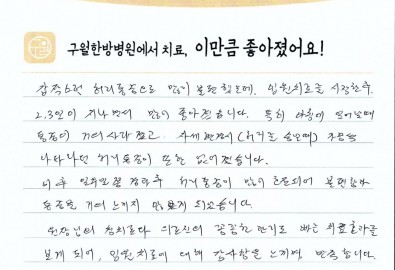 구월한방병원에서 치료, 이만큼 좋아졌어요!
허리통증으로 많이 불편했는데, 입원치료를 시작한 후
2, 3일이 지나면서 많이 좋아졌습니다. 특히 아침에 일어날때
통증이 거의 사라졌고, 자세변경시 (허리를 숙일때)
나타나던 허리통증이 또한 없어졌습니다.
이후 일주일쯤 경과후 허리통증이 많이 호전되어 불편함과
통증을 거의 느끼지 않게 되었습니다.
원장님의 침치료와 의료진의 꼼꼼한 관리로 빠른 치료효과를
보게 되어, 입원치료에 대해 감사함을 느끼며, 만족합니다.